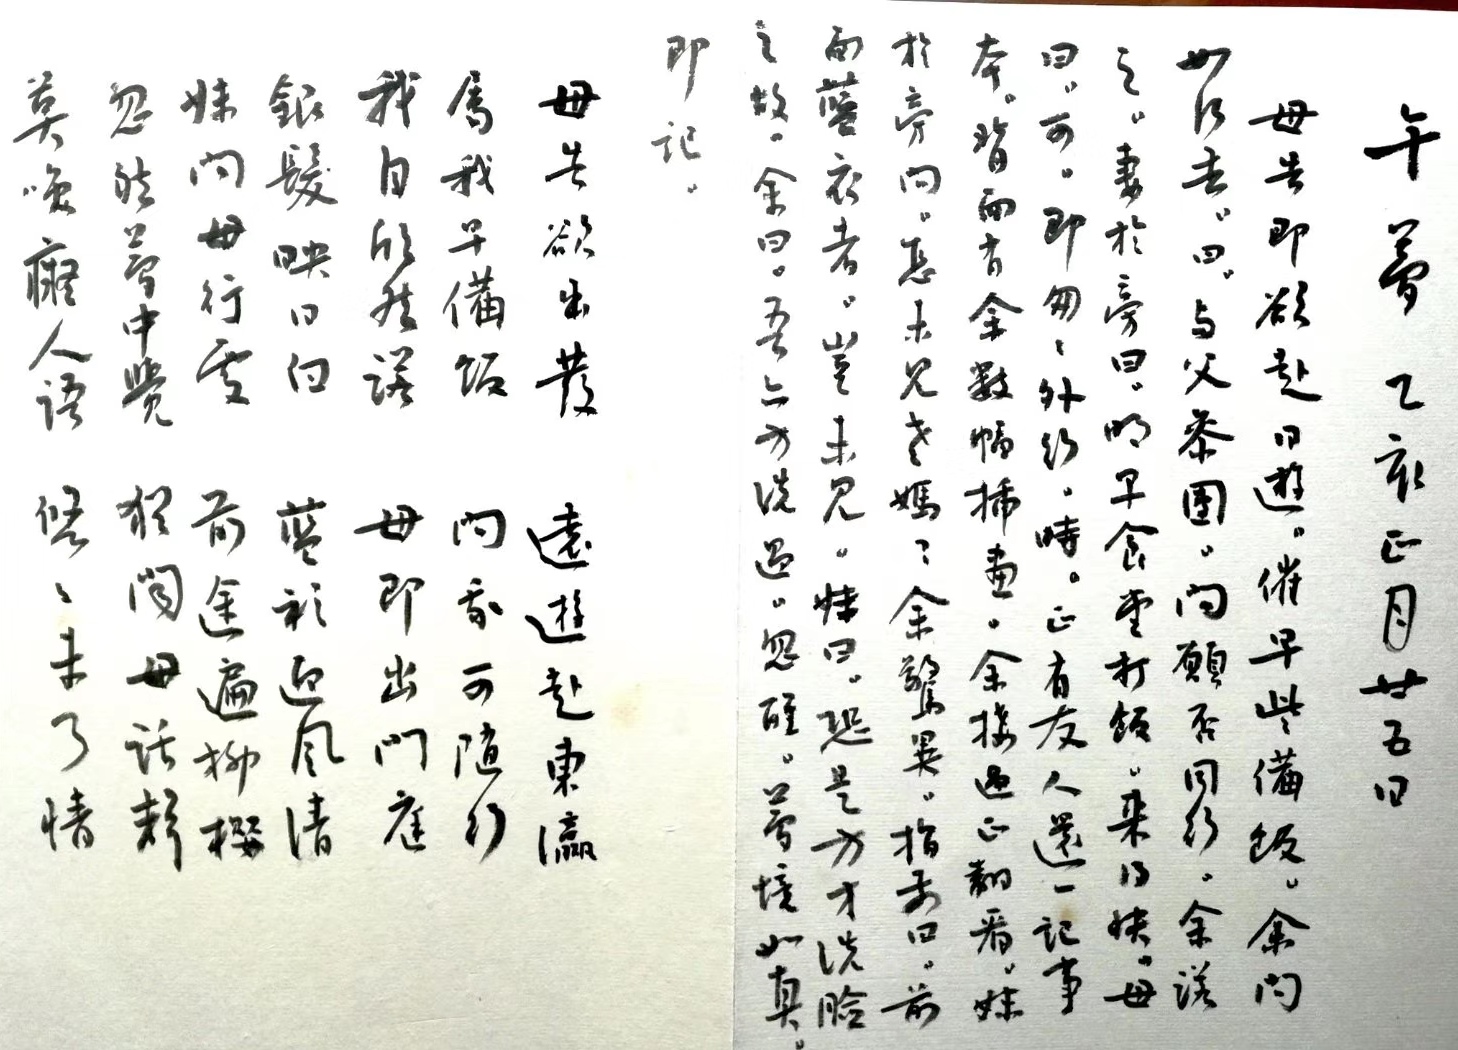 午夢 乙亥正月廿五日
母告即欲赴日遊。催早些備飯。余問
如何去。曰。与父參團。问願否同行。余諾
之。妻於旁曰。明早食堂打飯。来得快。母
曰。可。即匆々外行。時。正有友人還一記事
本。背面有余數幅插畫。余接過正翻看。妹
於旁问。怎未见老媽々余驚異。指前曰。前
面藍衣者。豈未见。妹曰。恐是方才洗臉
之故。余曰。吾亦方洗過。忽醒。夢境如真。
即記。
母告欲出發 遠遊赴東瀛
屬我早備飯 问我可随行
我自欣然諾 母即出門庭
銀髮映日白 藍衫迎風清
妹问母行處 前途遍柳櫻
忽然夢中覺 猶聞母話聲
莫喚癡人語 悠々未了情